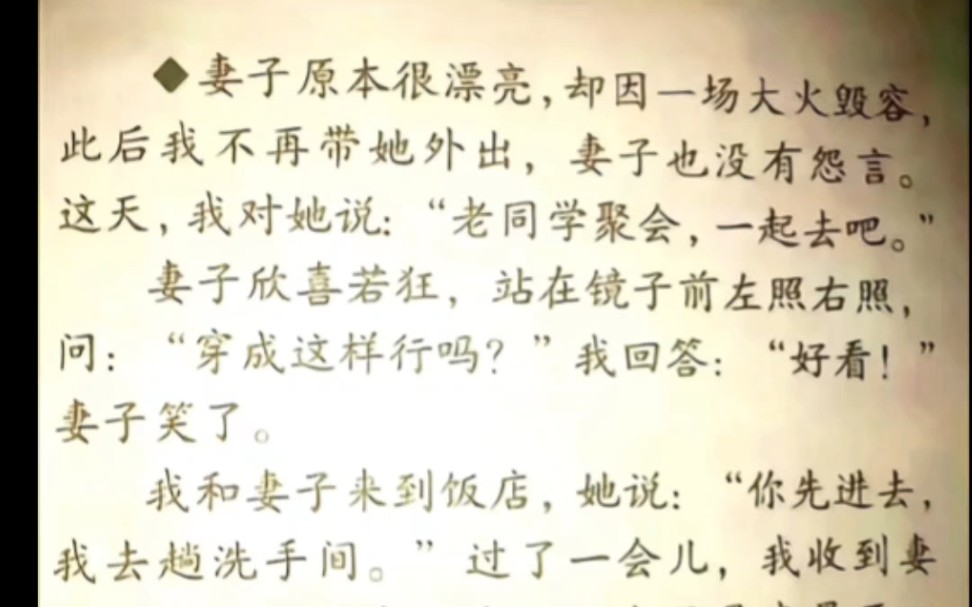 ◆妻子原本很漂亮,却因一场大火毁容,
此后我不再带她外出,妻子也没有怨言。
这天,我对她说:“老同学聚会,一起去吧。”
妻子欣喜若狂,站在镜子前左照右照,
问:“穿成这样行吗?”我回答:“好看!”
妻子笑了。
我和妻子来到饭店,她说:“你先进去,
我去趟洗手间。”过了一会儿,我收到妻